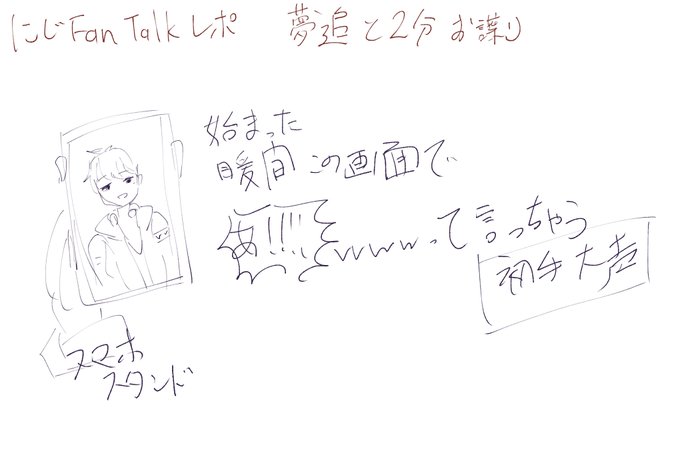 にじFanTalkレポ 夢追と2分お喋り
始まった
瞬間この画面で
あ!!!!wwwwって言っちゃう
初手大声
スマホ
スタンド